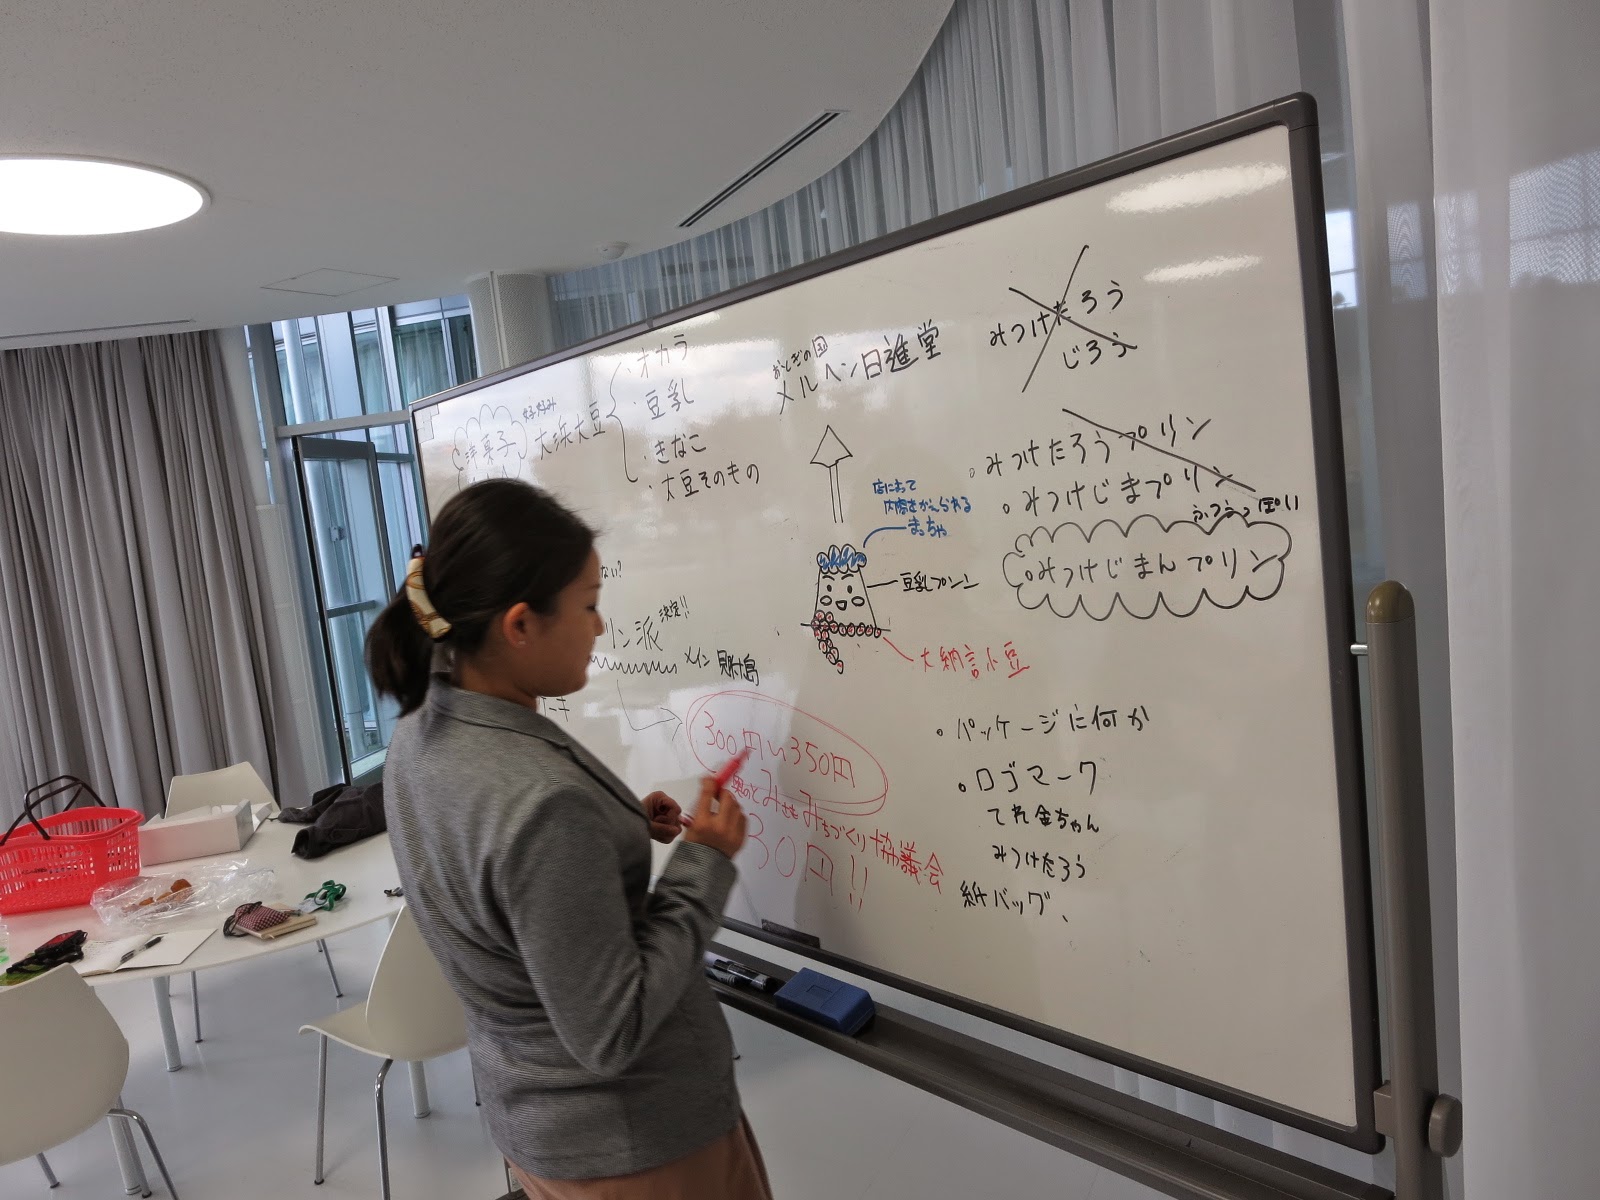 洋菓子
大浜大豆
・オカラ
・豆乳
・きなこ
・大豆そのもの
ない?
リン派 決定!!
メイン 見附島
ーキ
300円〜350円
奥のとみさきみちづくり協議会
30円!!
おとぎの国
メルヘン日進堂
店によって
内容をかえられる
まっちゃ
豆乳プリン
大納言小豆
みつけたろう
じろう
。みつけたろうプリン
。みつけじまプリン
ふつうっぽい
。みつけじまんプリン
・パッケージに何か
・ロゴマーク
てれ金ちゃん
みつけたろう
紙バッグ、